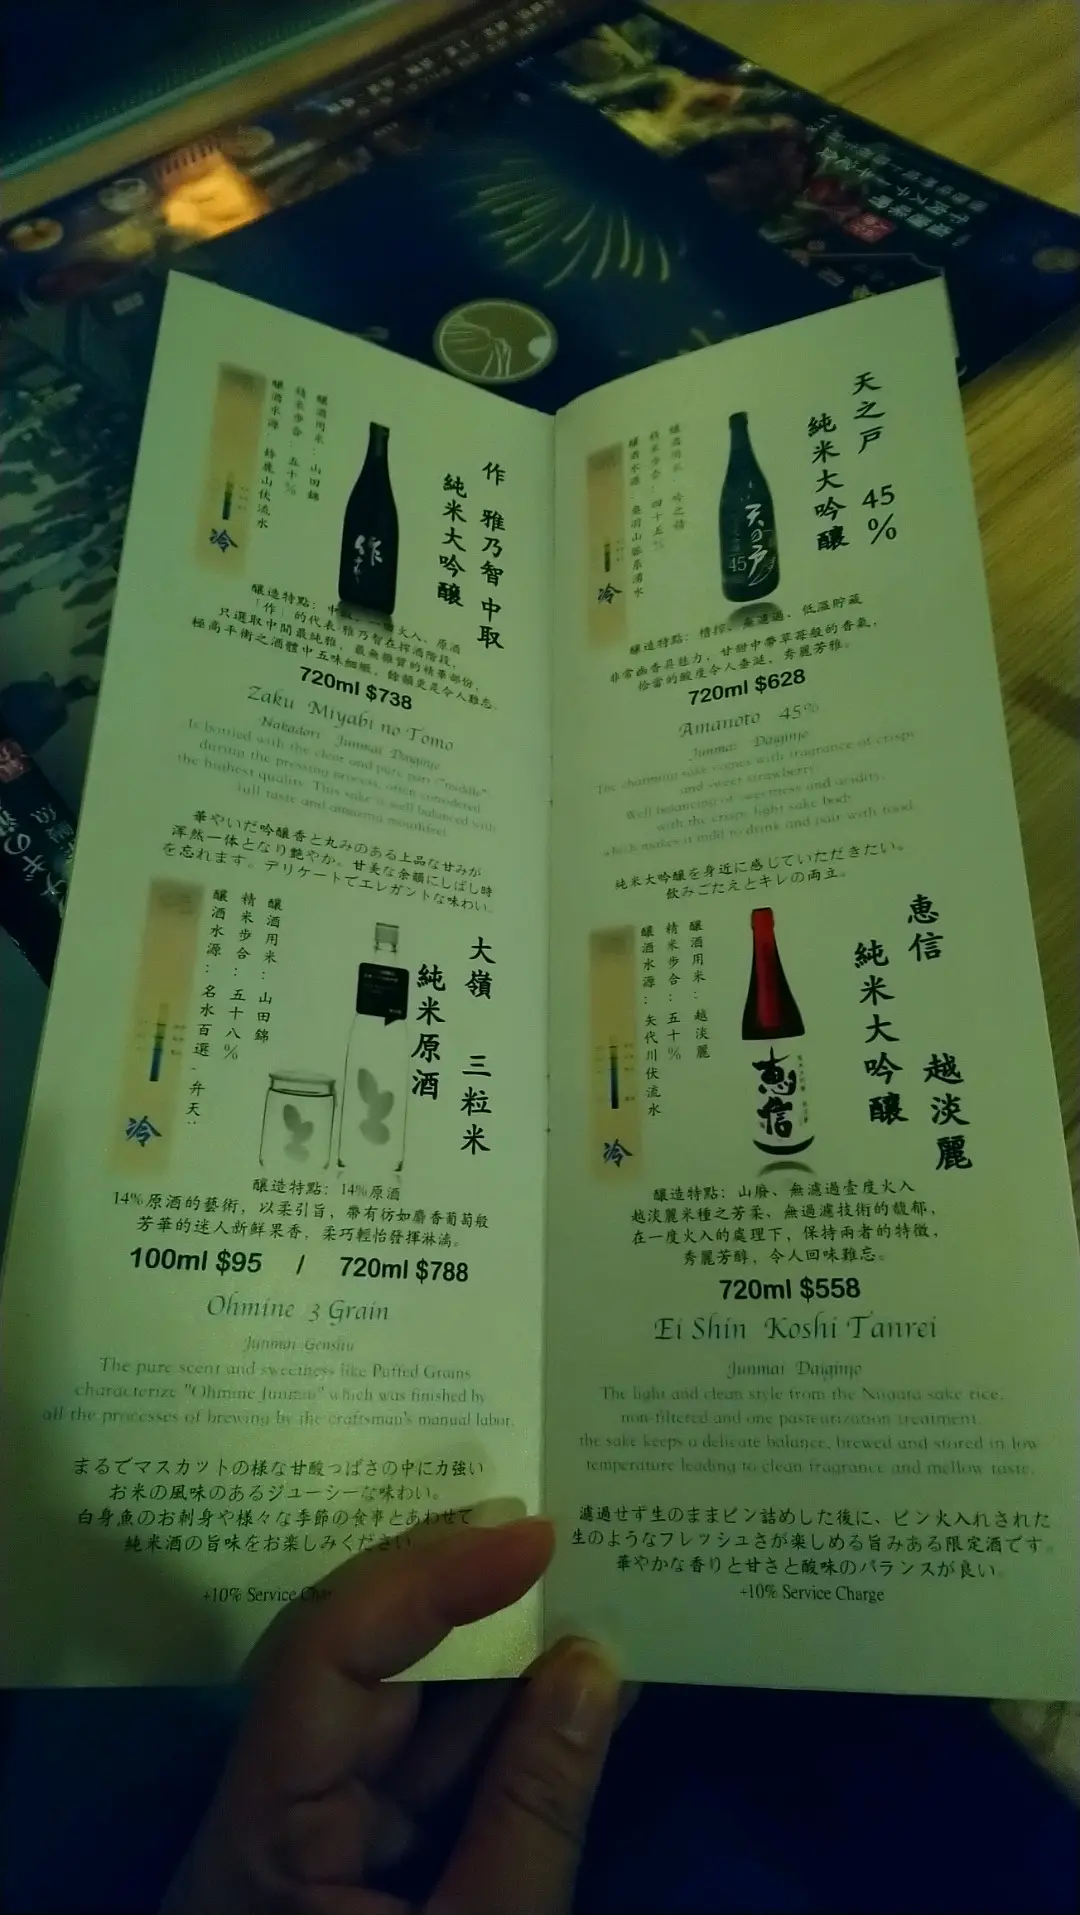 作 雅乃智 中取
純米大吟釀
釀酒用米：山田錦
精米步合：五十%
釀酒水源：鈴鹿山伏流水
冷
作
釀造特點：中
火入、原酒
「作」的代表雅乃智在搾酒階段，
只選取中間最純雅，最無雜質的精華部份，
極高平衡之酒體中五味細緻，餘韻更是令人難忘。
720ml $738
Zaku Miyabi no Tomo
Nakadori Junmai Daiginjo
Is bottled with the clear and pure part ("middle"
during the pressing process, often considered
the highest quality. This sake is well balanced with
full taste and amazing mouthfeel
華やいだ吟醸香と丸みのある上品な甘みが
渾然一体となり艶やか。甘美な余韻にしばし時
を忘れます。デリケートでエレガントな味わい。
大嶺 三粒米
純米原酒
釀酒用米：山田錦
精米步合：五十八%
釀酒水源：名水百選-弁天
冷
釀造特點：14%原酒
14%原酒的藝術，以柔引旨，帶有彷如麝香葡萄般
芳華的迷人新鮮果香，柔巧輕怡發揮淋漓。
100ml $95 / 720ml $788
Ohmine 3 Grain
Junmai Genshu
The pure scent and sweetness like Puffed Grains
characterize "Ohmine Junmai" which was finished by
all the processes of brewing by the craftsman's manual labor.
まるでマスカットの様な甘酸っぱさの中に力強い
お米の風味のあるジューシーな味わい。
白身魚のお刺身や様々な季節の食事とあわせて
純米酒の旨味をお楽しみください
+10% Service Char
天之戸 45%
純米大吟釀
釀酒用米：吟之精
精米步合：四十五%
釀酒水源：奥羽山脈系湧水
冷
天の戸
45
釀造特點：槽搾、無濾過、低溫貯藏
非常幽香具魅力，甘甜中帶草莓般的香氣，
恰當的酸度令人垂涎，秀麗芳雅。
720ml $628
Amanoto 45%
Junmai Daiginjo
The charming sake comes with fragrance of crisps
and sweet strawberry.
Well balancing of sweetness and acidity,
with the crisps, light sake body
which makes it mild to drink and pair with food.
純米大吟醸を身近に感じていただきたい。
飲みごたえとキレの両立。
恵信 越淡麗
純米大吟釀
釀酒用米：越淡麗
精米步合：五十%
釀酒水源：矢代川伏流水
冷
恵信
釀造特點：山廃、無濾過壹度火入
越淡麗米種之芳柔、無過濾技術的馥郁，
在一度火入的處理下，保持兩者的特徵，
秀麗芳醇，令人回味難忘。
720ml $558
Ei Shin Koshi Tanrei
Junmai Daiginjo
The light and clean style from the Niigata sake rice,
non-filtered and one pasteurization treatment,
the sake keeps a delicate balance, brewed and stored in low
temperature leading to clean fragrance and mellow taste.
濾過せず生のままビン詰めした後に、ビン火入れされた
生のようなフレッシュさが楽しめる旨みある限定酒です。
華やかな香りと甘さと酸味のバランスが良い。
+10% Service Charge